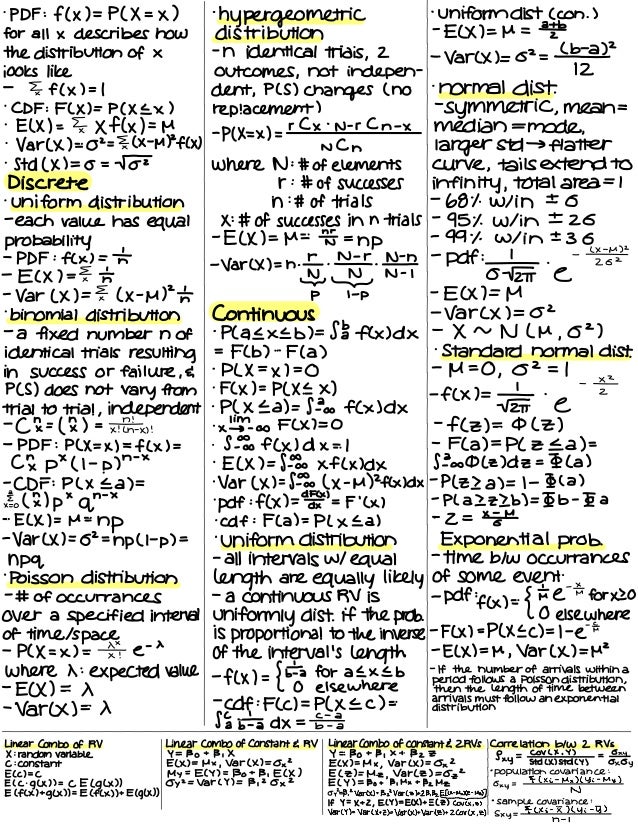 ·PDF: f(x) = P(X=x)
for all x describes how
the distribution of x
looks like
- Σx f(x)=1
·CDF: F(x)= P(X≤x)
·E(X)= Σx Xf(x)=M
·Var(X)=σ²=Σx(X-M)²f(x)
·Std(X)=σ=√σ²
Discrete
·uniform distribution
-each value has equal
probability
-PDF: f(x)= 1/n
-E(X)= Σx 1/n
-Var(X)=Σx (X-M)² 1/n
·binomial distribution
-a fixed number n of
identical trials resulting
in success or failure, &
P(S) does not vary from
trial to trial, independent
-Cⁿₓ=(ⁿₓ)= n!/x!(n-x)!
-PDF: P(X=x)=f(x)=
Cⁿₓ pˣ(1-p)ⁿ⁻ˣ
-CDF: P(X≤a)=
Σᵃₓ₌₀ (ⁿₓ)pˣ qⁿ⁻ˣ
-E(X)=M=np
-Var(X)=σ²=np(1-p)=
npq
·Poisson distribution
-# of occurrances
over a specified interval
of time/space
-P(X=x)= λˣ/x! e^-λ
where λ: expected value
-E(X)= λ
-Var(X)= λ
·hypergeometric
distribution
-n identical trials, 2
outcomes, not indepen-
dent, P(S) changes (no
replacement)
-P(X=x)= rCx · N-rCn-x / NCn
where N: # of elements
r: # of successes
n: # of trials
X: # of successes in n trials
-E(X)=M= nr/N =np
-Var(X)=n· r/N · N-r/N · N-n/N-1
p 1-p
Continuous
·P(a≤x≤b)= ∫ᵇₐ f(x)dx
= F(b)-F(a)
·P(X=x)=0
·F(x)=P(X≤x)
·P(X≤a)=∫ᵃ-∞ f(x)dx
·lim x→-∞ F(X)=0
·∫^∞-∞ f(x)dx=1
·E(X)=∫^∞-∞ xf(x)dx
·Var(X)=∫^∞-∞ (x-M)²f(x)dx
·pdf: f(x)= dF(x)/dx = F'(x)
·cdf: F(a)=P(x≤a)
·uniform distribution
-all intervals w/ equal
length are equally likely
-a continuous RV is
uniformly dist. if the prob.
is proportional to the inverse
of the interval's length
-f(x)= { 1/b-a for a≤x≤b
0 elsewhere
-cdf: F(c)=P(X≤c)=
∫ᶜₐ 1/b-a dx = c-a/b-a
·uniform dist (con.)
-E(X)=M= a+b/2
-Var(X)=σ²= (b-a)²/12
·normal dist.
-symmetric, mean=
median=mode,
larger std→flatter
curve, tails extend to
infinity, total area=1
-68% w/in ±σ
-95% w/in ±2σ
-99% w/in ±3σ
-pdf: 1/σ√2π · e^-(x-M)²/2σ²
-E(X)=M
-Var(X)=σ²
-X~N(M,σ²)
·Standard normal dist
-M=0, σ²=1
-f(x)= 1/√2π · e^-x²/2
-f(z)= Φ(z)
-F(a)=P(Z≤a)=
∫ᵃ-∞Φ(z)dz=Φ(a)
-P(Z≥a)=1-Φ(a)
-P(a≥z≥b)=Φb-Φa
-Z= x-M/σ
·Exponential prob.
-time b/w occurrances
of some event.
-pdf: f(x)= { 1/M e^-x/M for x≥0
0 elsewhere
-F(X)=P(X≤c)=1-e^-c/M
-E(X)=M, Var(X)=M²
-If the number of arrivals within a
period follows a Poisson distribution,
then the length of time between
arrivals must follow an exponential
distribution
Linear Combo of RV
X: random variable
C: constant
E(c)=c
E(c·g(x))= c E(g(x))
E(f(x)+g(x))=E(f(x))+E(g(x))
Linear Combo of Constant & RV
Y=β₀+β₁X
E(X)=Mx, Var(X)=σx²
My=E(Y)=β₀+β₁E(X)
σy²=Var(Y)=β₁²σx²
Linear Combo of constant & 2RVs
Y=β₀+β₁X+β₂Z
E(X)=Mx, Var(X)=σx²
E(Z)=Mz, Var(Z)=σz²
E(Y)=β₀+β₁Mx+β₂Mz
If Y=X+Z, E(Y)=E(X)+E(Z) Cov(x,z)
Var(Y)=Var(X+Z)=Var(X)+Var(Z)+2Cov(X,Z)
Correlation b/w 2 RVs
ρxy= Cov(X,Y)/Std(X)Std(Y) = σxy/σxσy
·population covariance:
σxy= Σ(xi-Mx)(yi-My)/N
·sample covariance:
Sxy= Σ(xi-x̄)(yi-ȳ)/n-1